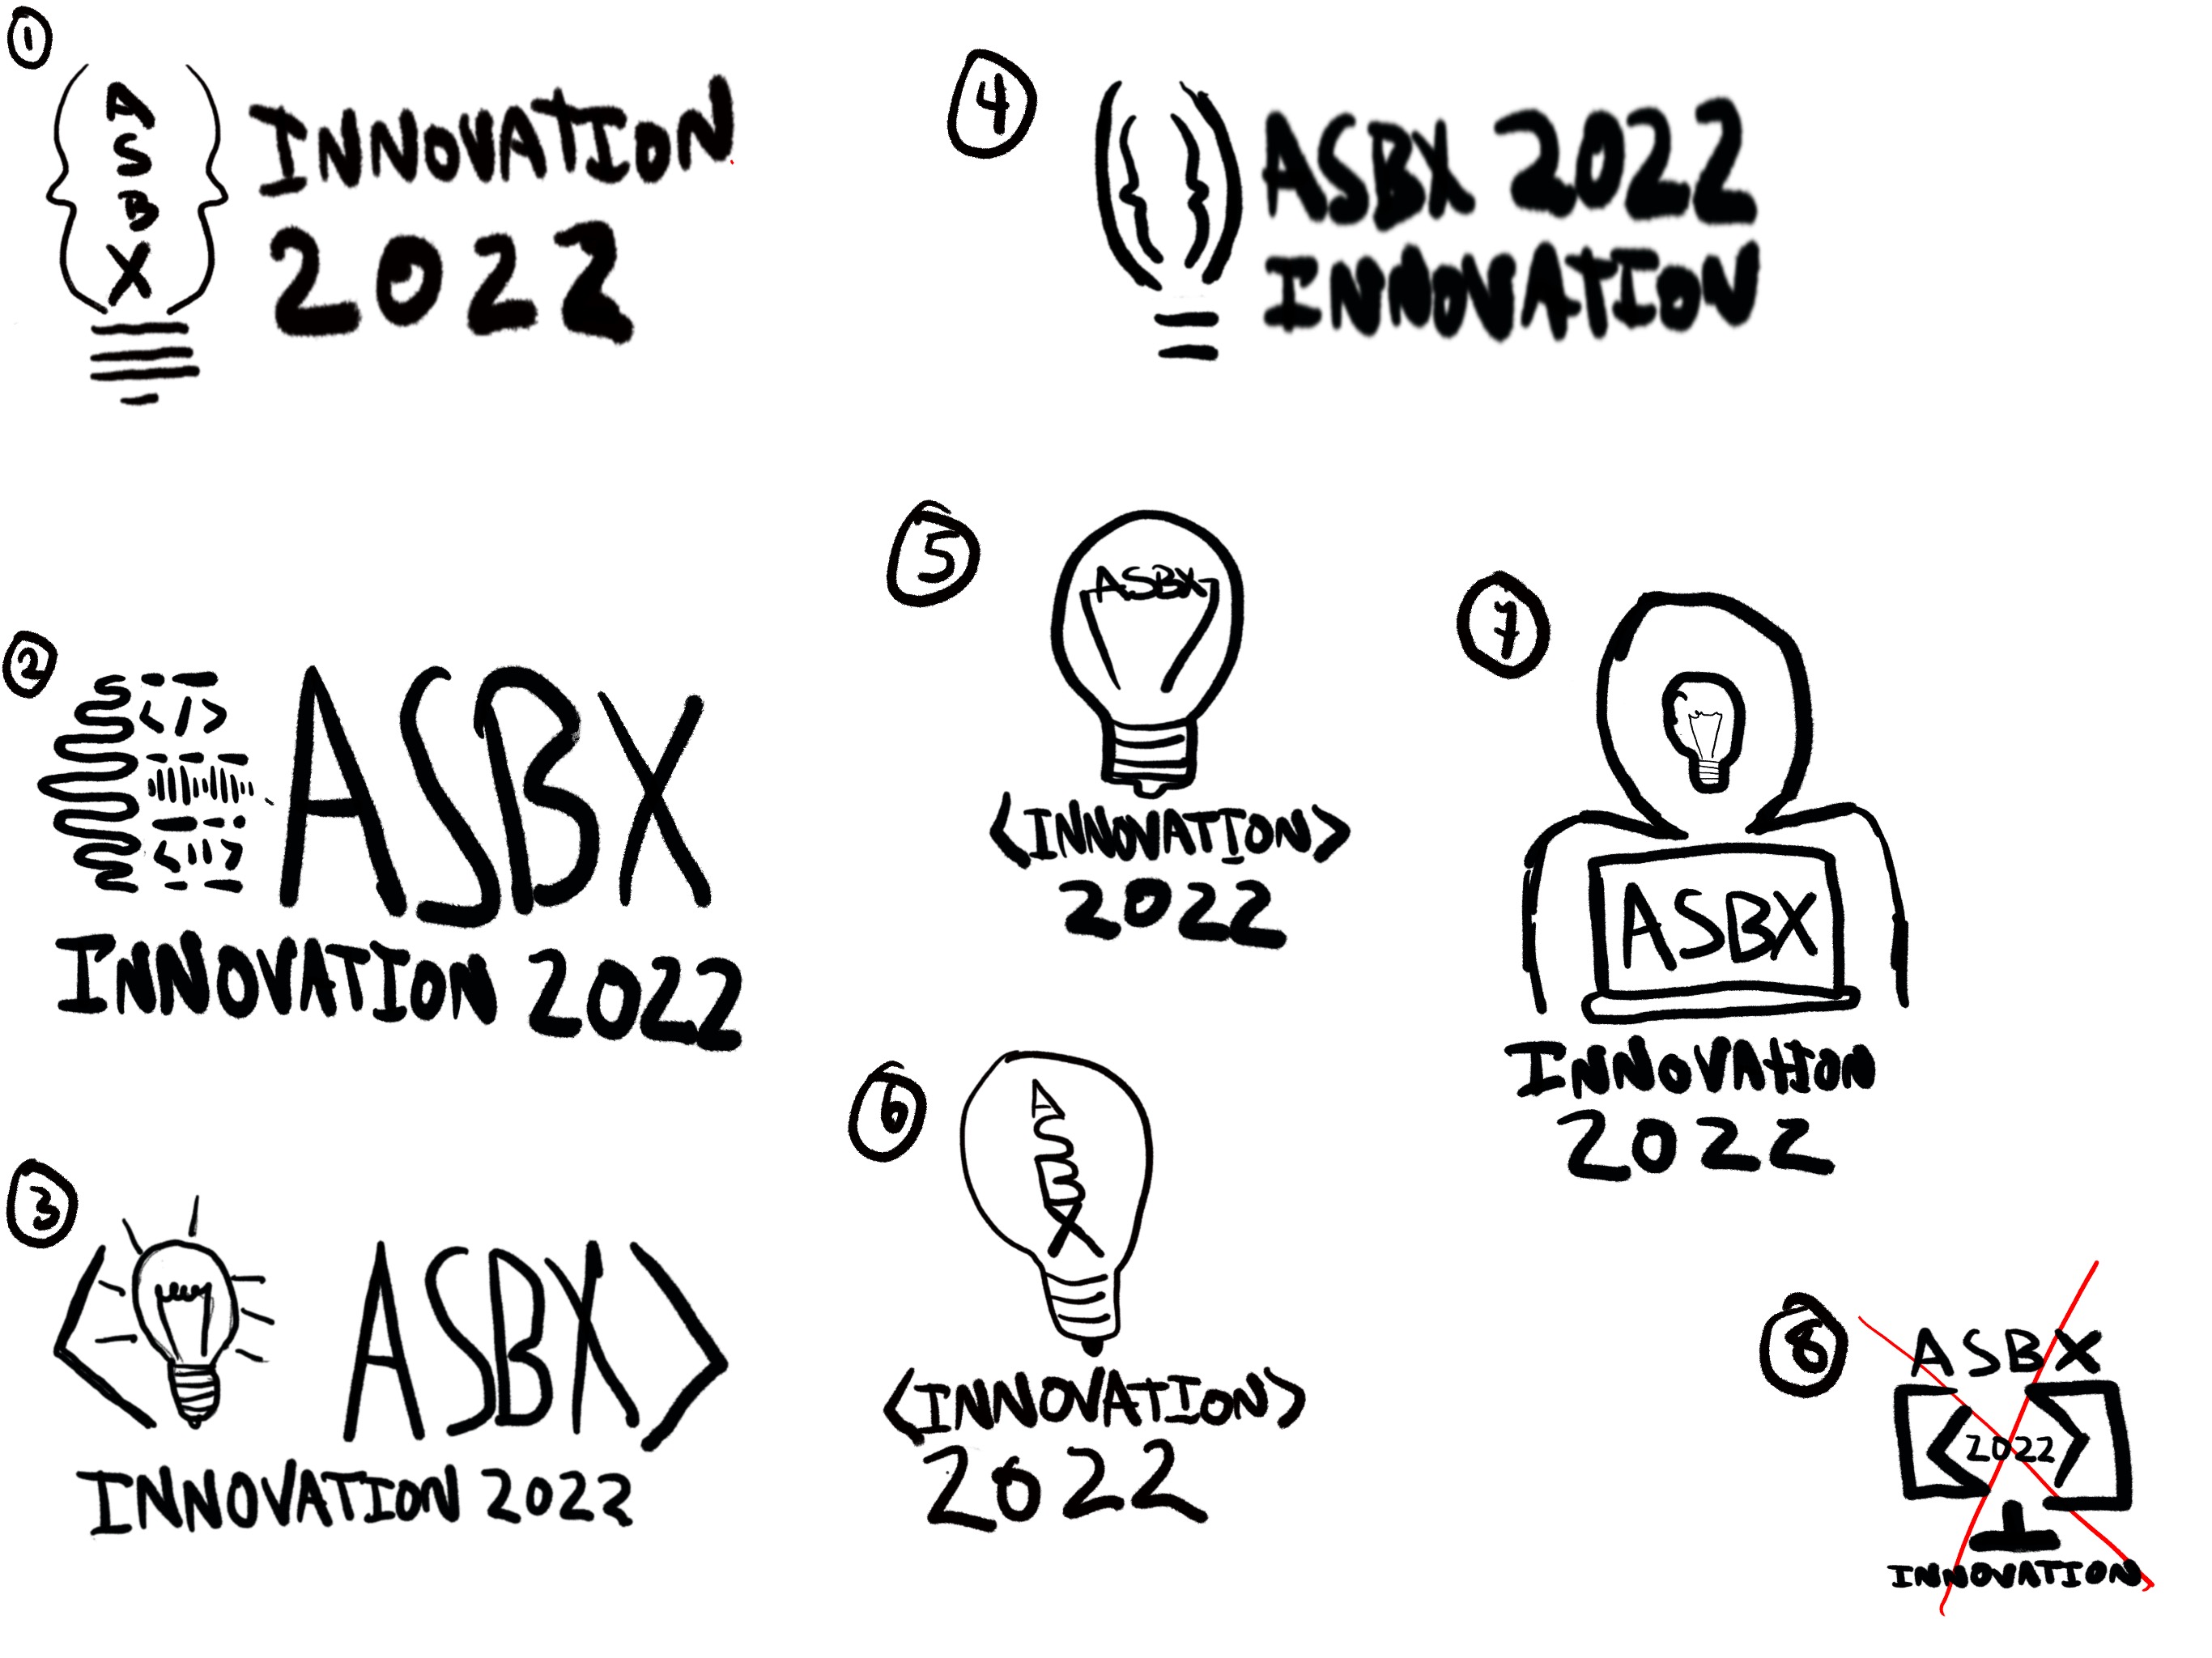 1
A
S
B
X
INNOVATION
2022
2
</>
ASBX
<11>
INNOVATION 2022
3
< ASBX>
INNOVATION 2022
4
{ }
ASBX 2022
INNOVATION
5
ASBX
<INNOVATION>
2022
6
A
S
B
X
<INNOVATION>
2022
7
ASBX
INNOVATION
2022
8
ASBX
<2022>
INNOVATION